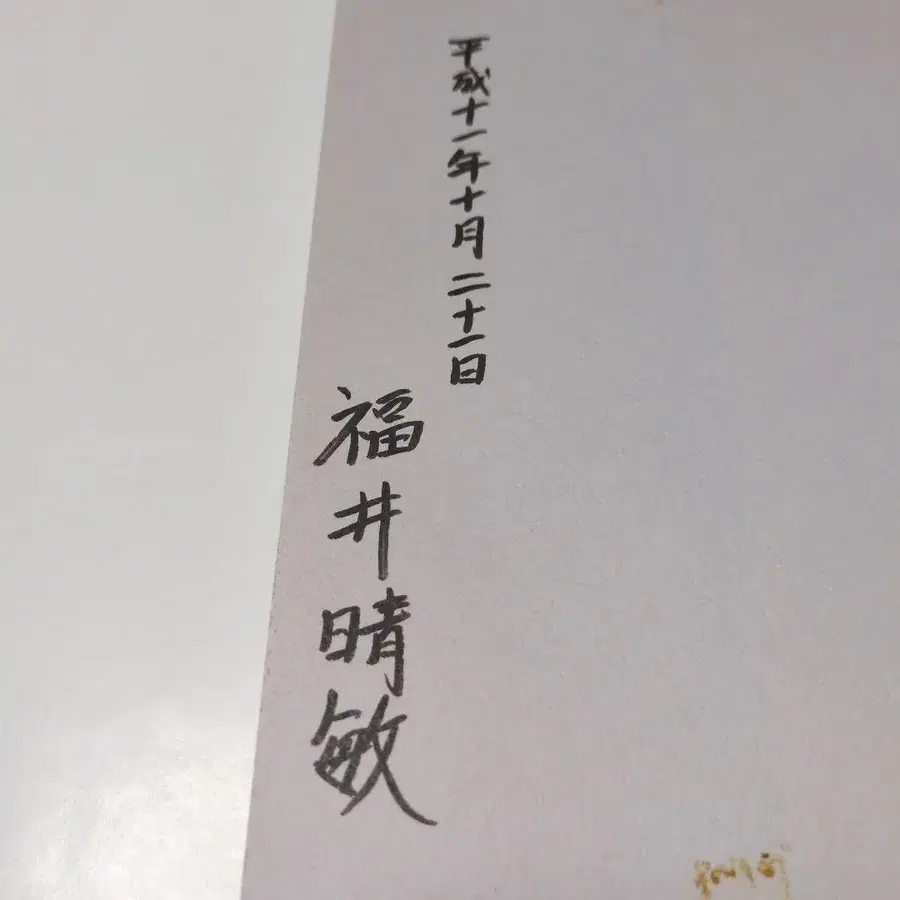 平成十一年十月二十一日
福井晴敏